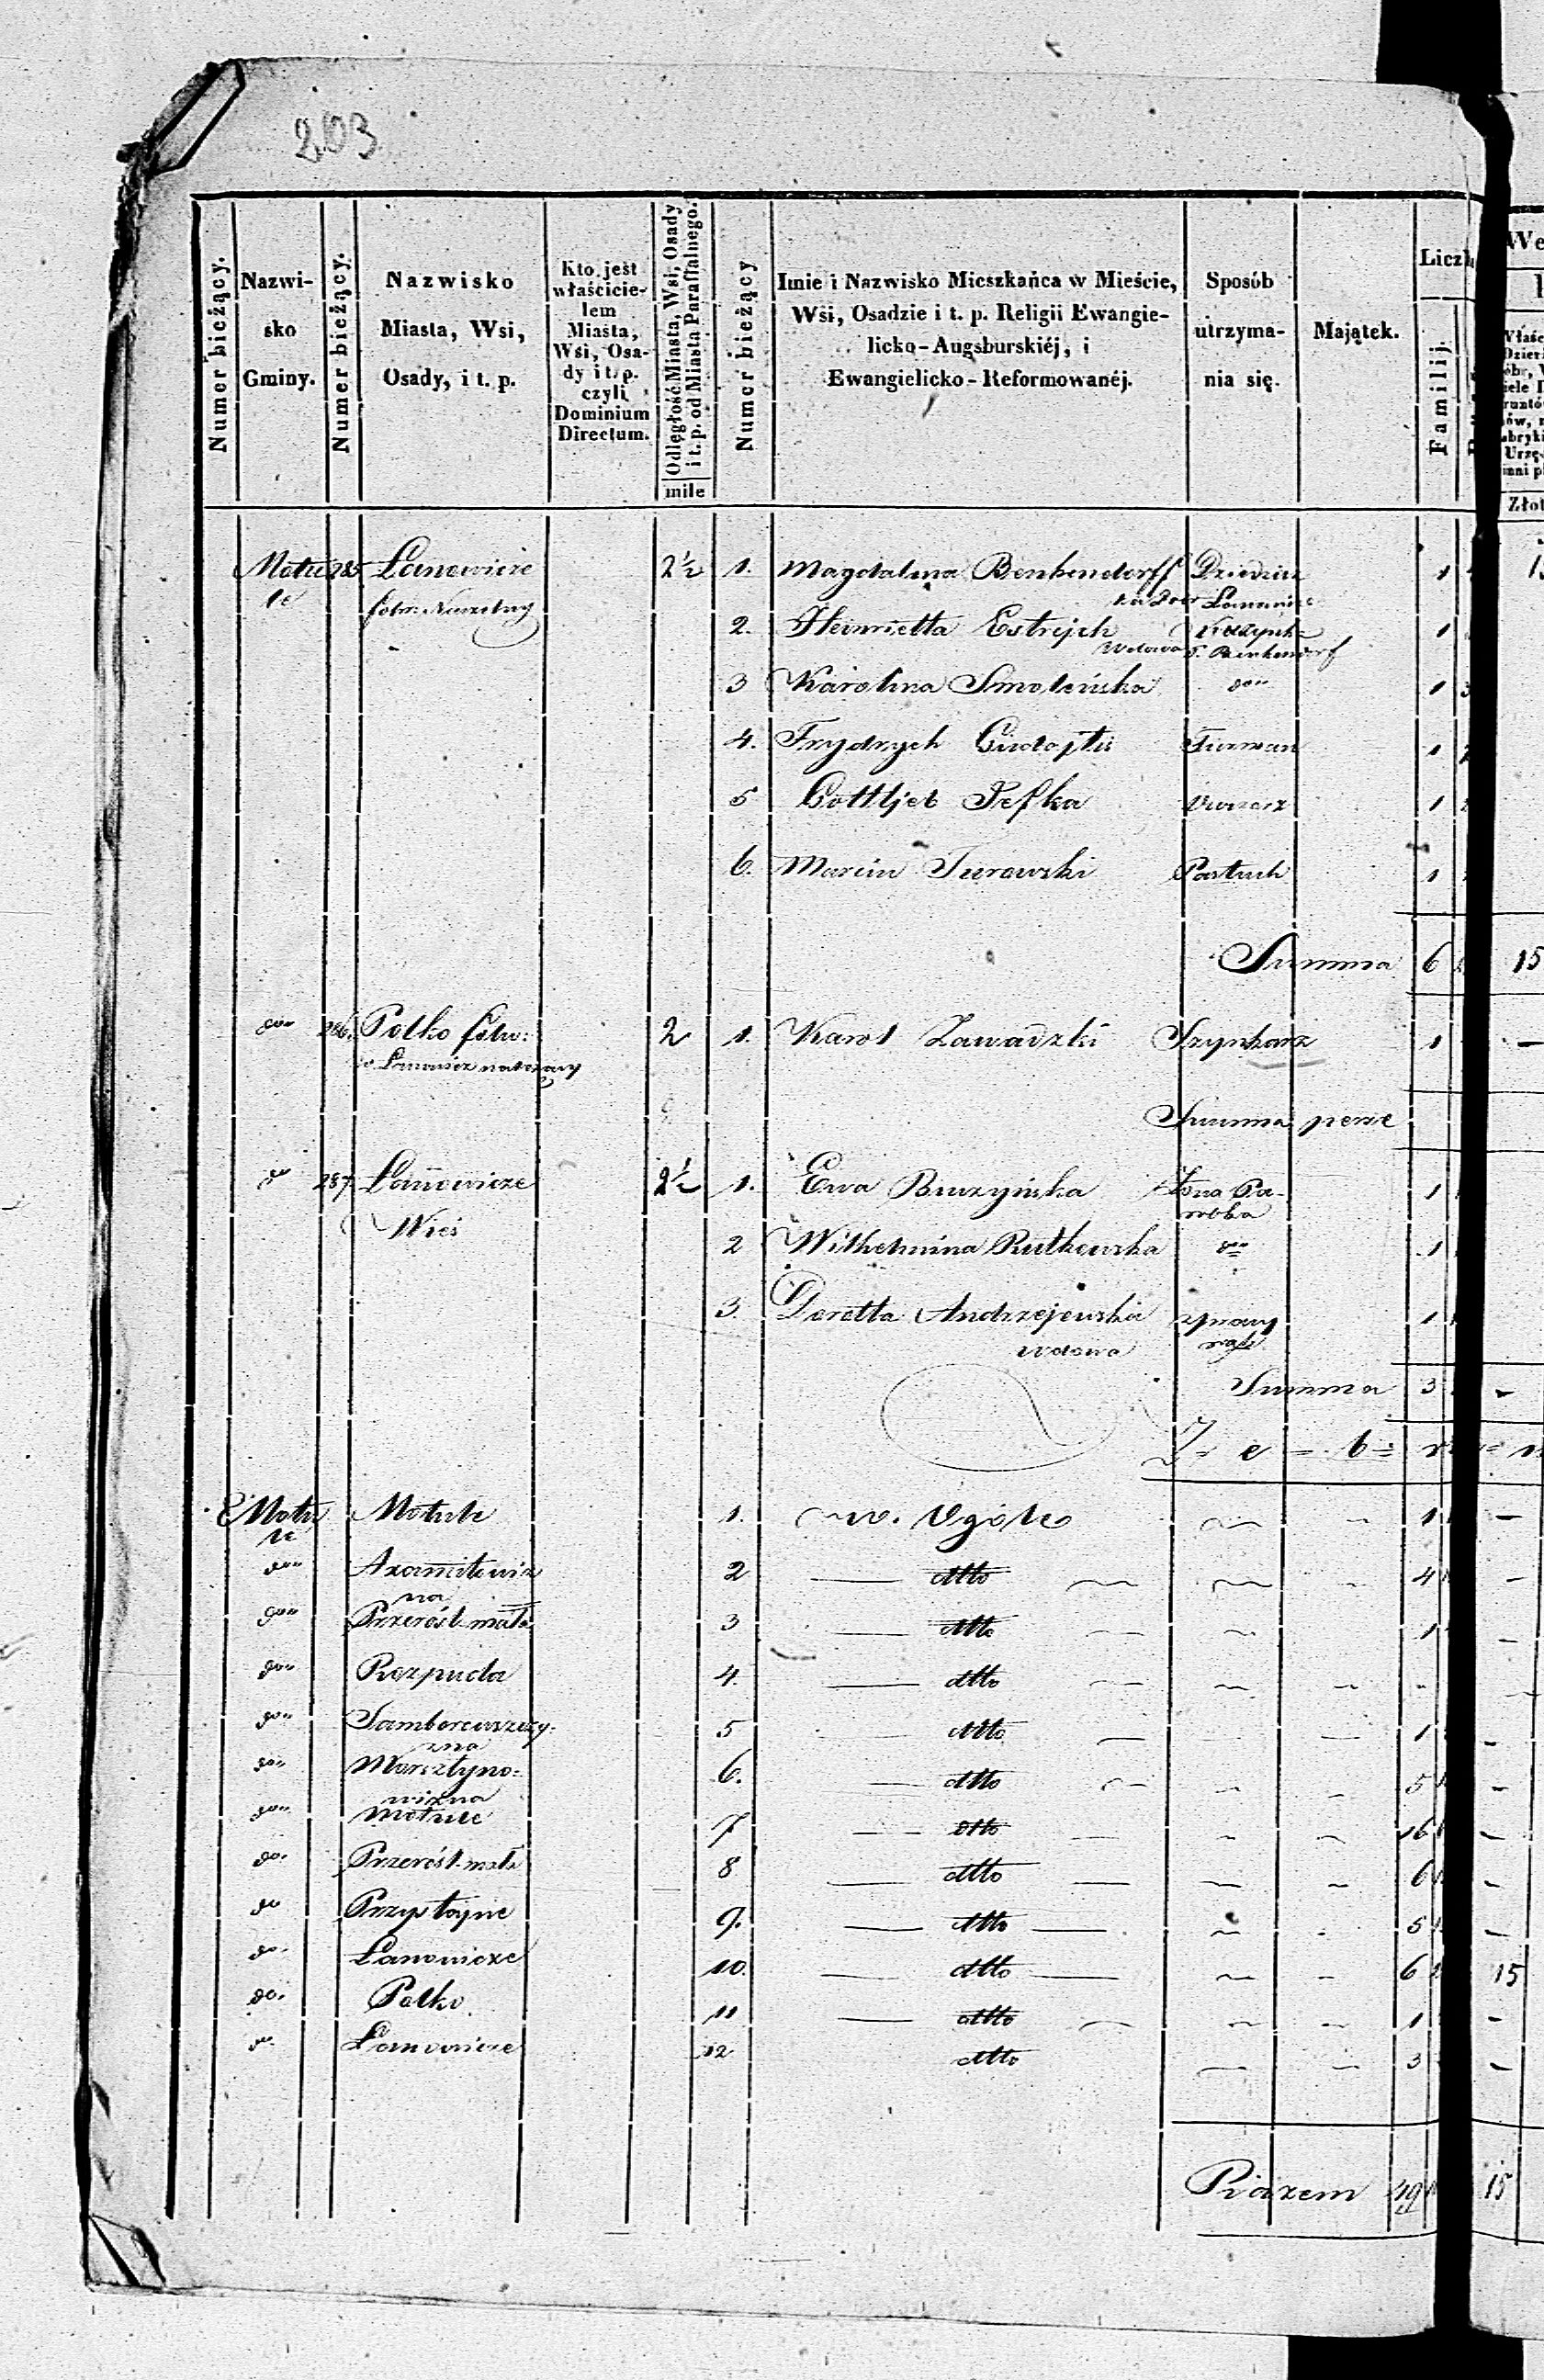 203
Numer bieżący.
Nazwi-
sko
Gminy.
Numer bieżący.
Nazwisko
Miasta, Wsi,
Osady, i t. p.
Kto jest
właścicie-
lem
Miasta,
Wsi, Osa-
dy i t. p.
czyli
Dominium
Directum.
Odległość Miasta, Wsi, Osady
i t. p. od Miasta Paraffalnego.
mile
Numer bieżący
Imie i Nazwisko Mieszkańca w Mieście,
Wsi, Osadzie i t. p. Religii Ewangie-
licko-Augsburskiéj, i
Ewangielicko-Reformowanéj.
Sposób
utrzyma-
nia się.
Majątek.
Licz
Familij.
Złot
Motu 285 Lanowicze 2½ 1. Magdalena Benkendorff Dziedzic 1
le folw:
2. Heinrietta Estrejch 1
Wdowa
3 Karolina Smoleńska do 1
4. Frydrych Furman 1
5 Gottljeb Jefka 1
6. Marcin Turowski Pastuch 1
Summa 6 15
do 286. Potko folw: 2 1. Karol Zawadzki Szynkarz 1 —
Summa perse
do 287 Lanowicze 2½ 1. Ewa Buczyńska Żona Pa- 1
Wieś robka
2 Wilhelmina Rutkowska do 1
3. Doretta Andrzejewska 1
wdowa
Summa 3 —
Motu Motule 1. w. Ogóle 1 —
le
do 2 dtto 4 —
do Przerośl mała 3 dtto 1
do Rozpuda 4. dtto
do 5 dtto 1
do 6. dtto 5 —
do Motule 7 dtto 16 —
do Przerośl mała 8 dtto 6 —
do Przystajne 9. dtto 5 —
do Lanowicze 10. dtto 6 15
do Potko 11 dtto 1 —
do Lanowicze 12 dtto 3 —
Razem 49 15